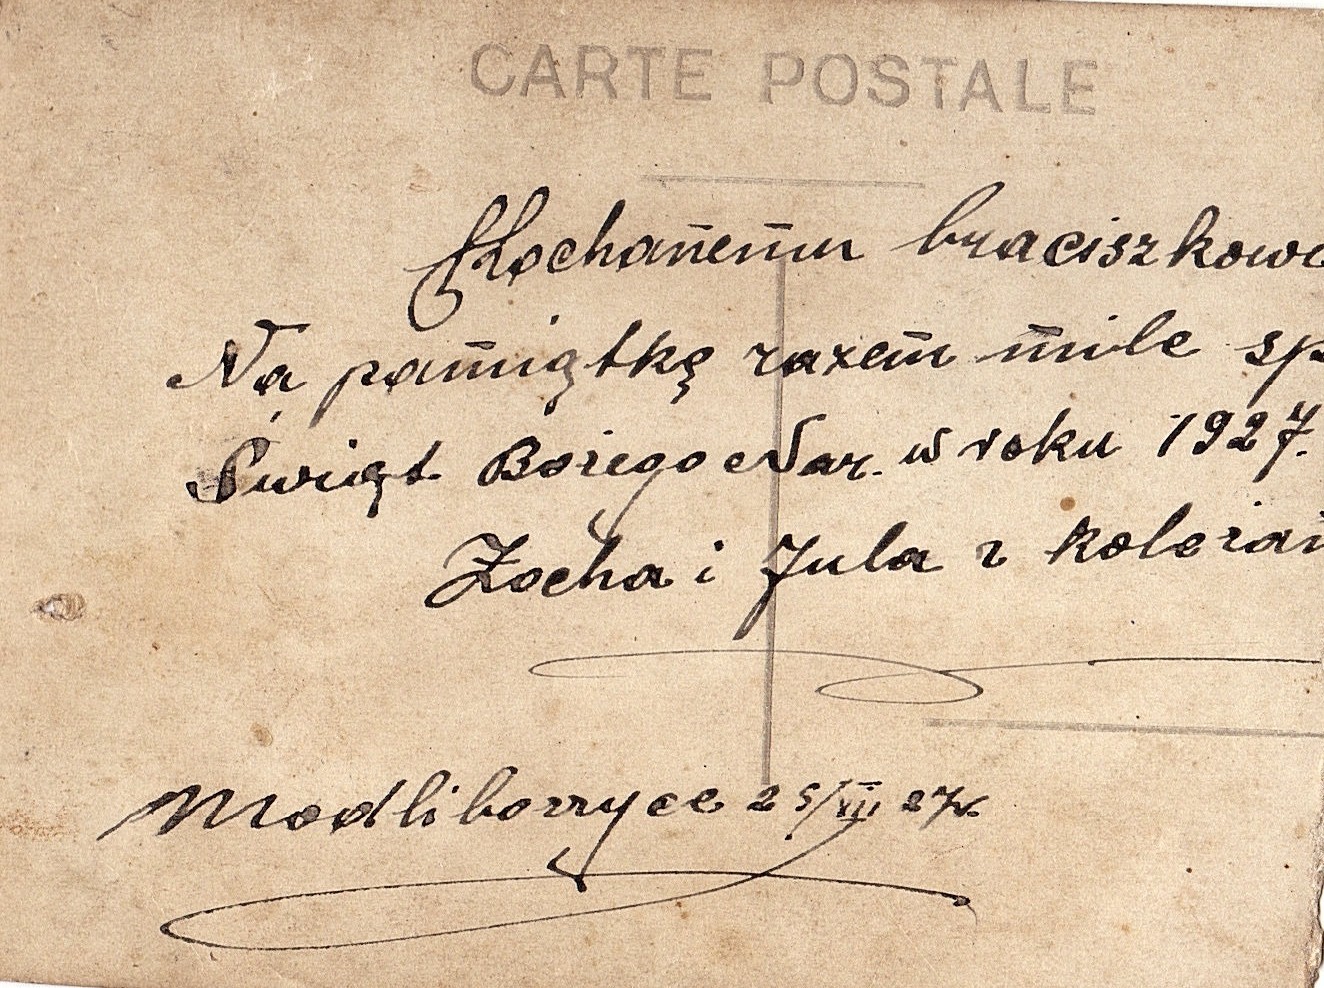 CARTE POSTALE
Kochanemu braciszkowi
Na pamiątkę razem mile sp
Świąt Bożego Nar. w roku 1927.
Zocha i Jula z koleżan
Modliborzyce 25/XII 27r.